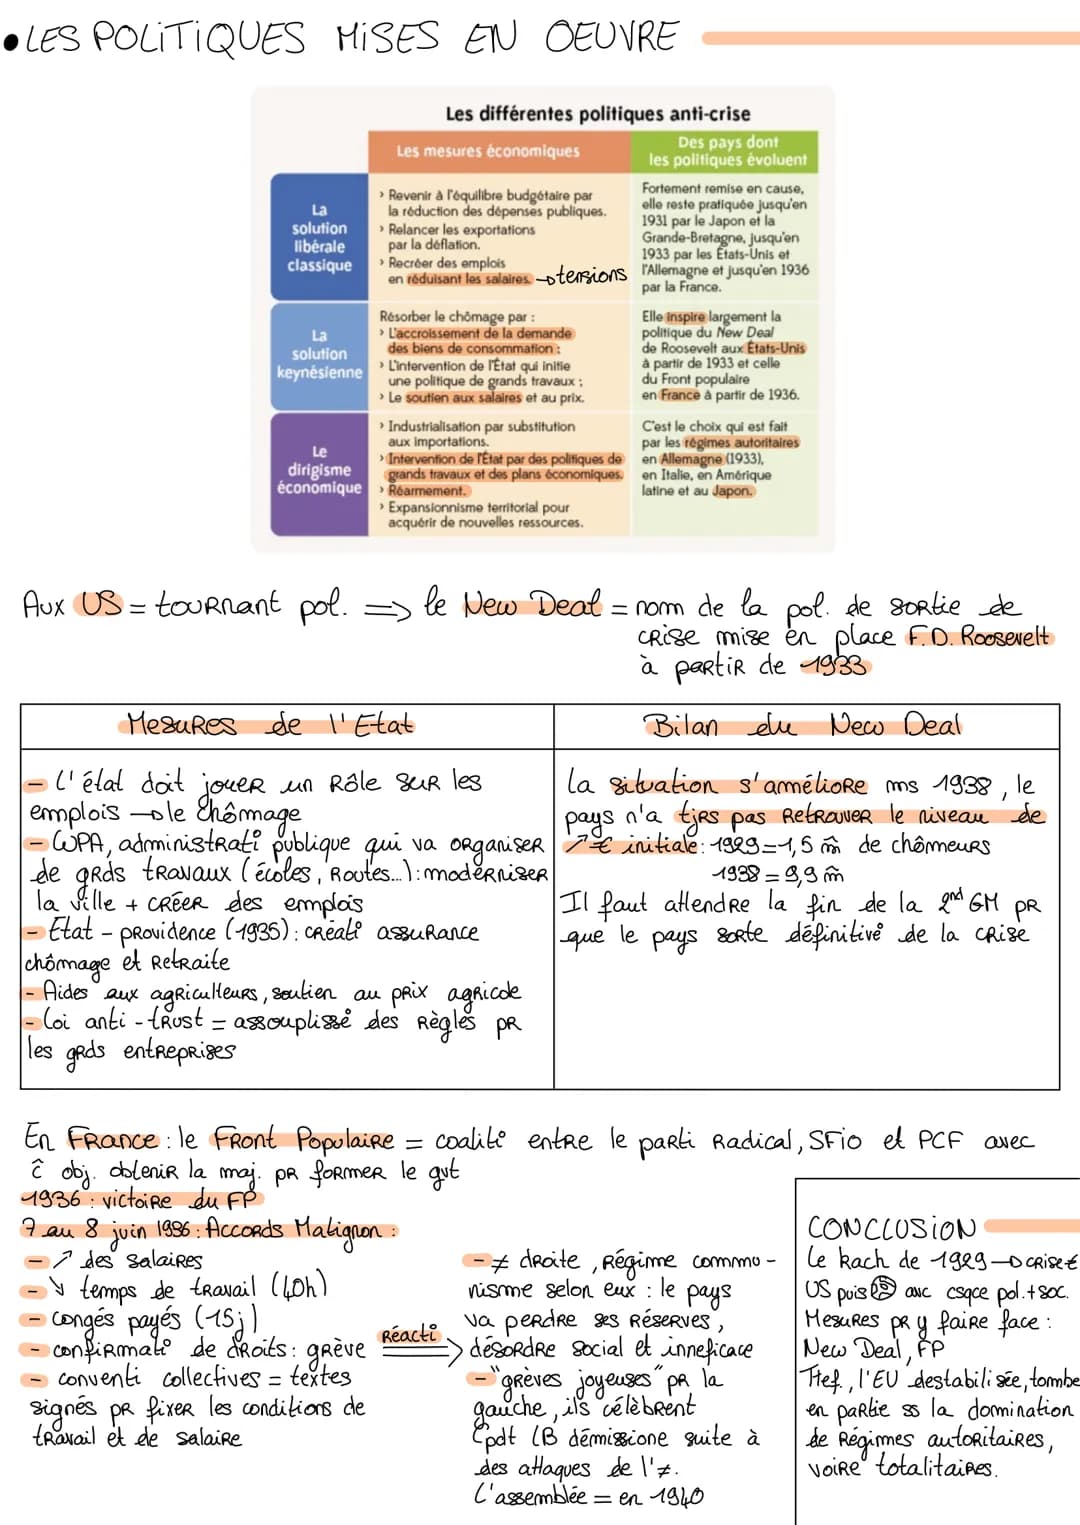 • LES POLITIQUES MISES EN OEUVRE
Les différentes politiques anti-crise
Les mesures économiques
Des pays dont
les politiques évoluent
La
solution
libérale
classique
› Revenir à l'équilibre budgétaire par
la réduction des dépenses publiques.
› Relancer les exportations
par la déflation.
› Recréer des emplois
en réduisant les salaires. → tensions
Fortement remise en cause,
elle reste pratiquée jusqu'en
1931 par le Japon et la
Grande-Bretagne, jusqu'en
1933 par les États-Unis et
l'Allemagne et jusqu'en 1936
par la France.
La
solution
keynésienne
Résorber le chômage par :
› L'accroissement de la demande
des biens de consommation ;
› L'intervention de l'État qui initie
une politique de grands travaux ;
› Le soutien aux salaires et au prix.
Elle inspire largement la
politique du New Deal
de Roosevelt aux États-Unis
à partir de 1933 et celle
du Front populaire
en France à partir de 1936.
Le
dirigisme
économique
› Industrialisation par substitution
aux importations.
› Intervention de l'État par des politiques de
grands travaux et des plans économiques.
› Réarmement.
› Expansionnisme territorial pour
acquérir de nouvelles ressources.
C'est le choix qui est fait
par les régimes autoritaires
en Allemagne (1933),
en Italie, en Amérique
latine et au Japon.
Aux US = tournant pol. ⇒ le New Deal = nom de la pol. de sortie de
crise mise en place F.D. Roosevelt
à partir de 1933
Mesures de l'Etat
- L'état doit jouer un rôle sur les
emplois → le chômage
- WPA, administrati° publique qui va organiser
de grds travaux (écoles, routes...) : moderniser
la ville + créer des emplois
- Etat - providence (1935) : créati° assurance
chômage et retraite
- Aides aux agriculteurs, soutien au prix agricole
- Loi anti - trust = assouplissê des règles pr
les grds entreprises
Bilan du New Deal
la situation s'améliore ms 1938, le
pays n'a tjrs pas retrouver le niveau de
↗ € initiale : 1929 = 1,5 m̂ de chômeurs
1938 = 9,9 m̂
Il faut attendre la fin de la 2nd GM pr
que le pays sorte définitivê de la crise
En France : le Front Populaire = coaliti° entre le parti Radical, SFio et PCF avec
ĉ obj. obtenir la maj. pr former le gvt
1936 : victoire du FP
7 au 8 juin 1936 : Accords Matignon :
- ↗ des salaires
- ↘ temps de travail (40h)
- congés payés (15j)
- confirmati° de droits : grève
- conventi° collectives = textes
signés pr fixer les conditions de
travail et de salaire
Réacti°
- ≠ droite, régime commu-
nisme selon eux : le pays
va perdre ses réserves,
désordre social et innefficace
- "grèves joyeuses" pr la
gauche, ils célèbrent
Cpdt LB démissione suite à
des attaques de l'≠.
L'assemblée = en 1940
CONCLUSION
Le krach de 1929 → crise €
US puis avc csqce pol. + soc.
Mesures pr y faire face :
New Deal, FP
Ttef., l'EU destabilisée, tombe
en partie ss la domination
de régimes autoritaires,
voire totalitaires.